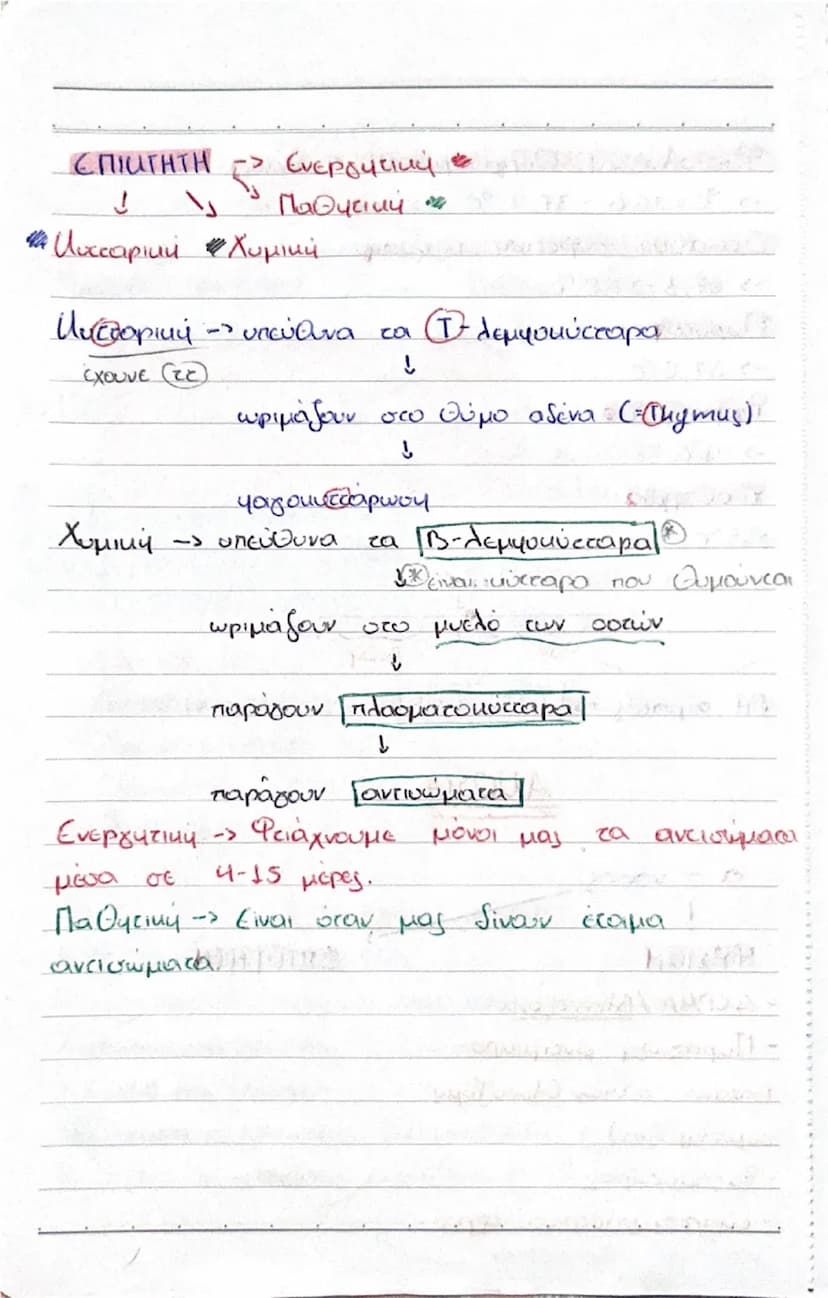 ΕΠΙΚΤΗΤΗ -> Ενεργητική
↓ ↘ ↘ Παθητική
Κυτταρική Χυμική
Κυτταρική -> υπεύθυνα τα Τ-λεμφοκύτταρα
έχουνε ττ ↓
ωριμάζουν στο θύμο αδένα (=Thymus)
↓
φαγοκυττάρωση
Χυμική -> υπεύθυνα τα Β-λεμφοκύτταρα *
↓ * είναι κύτταρο που θυμούνται
ωριμάζουν στο μυελό των οστών
↓
παράγουν πλασματοκύτταρα
↓
παράγουν αντισώματα
Ενεργητική -> Φτιάχνουμε μόνοι μας τα αντισώματα
μέσα σε 4-15 μέρες.
Παθητική -> Είναι όταν μας δίνουν έτοιμα
αντισώματα.